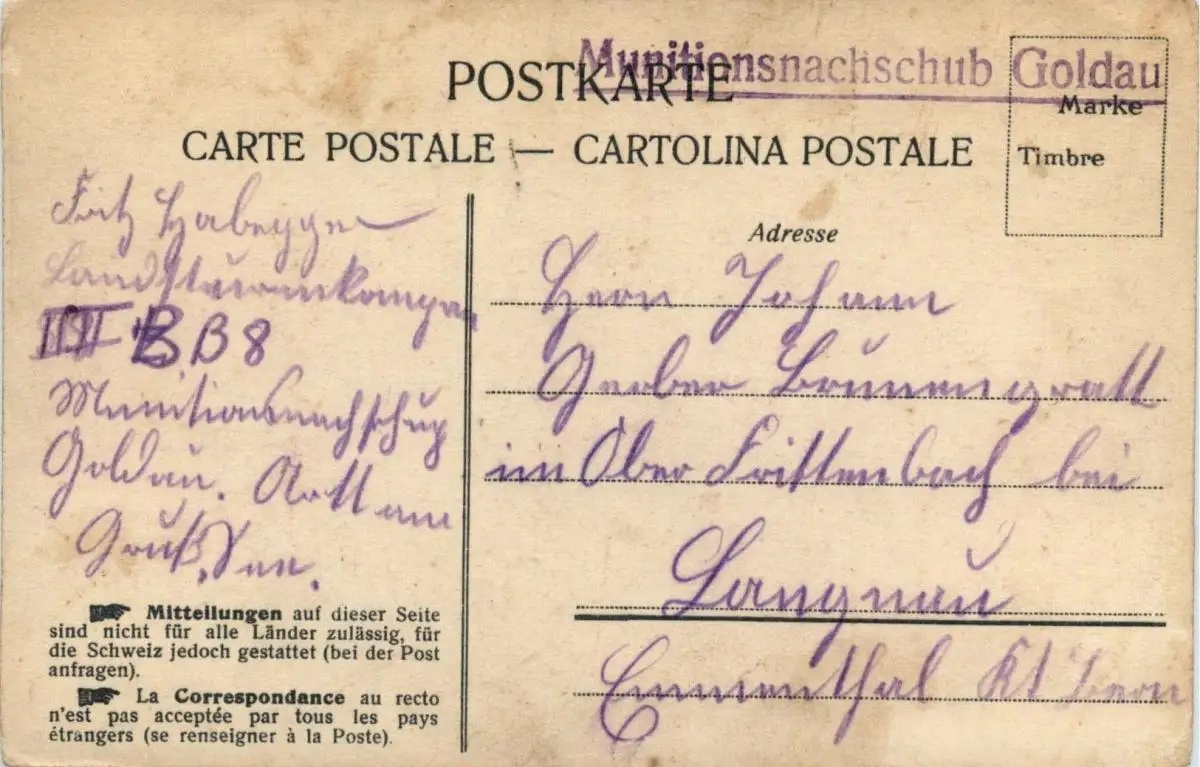 Munitionsnachschub Goldau
POSTKARTE
CARTE POSTALE — CARTOLINA POSTALE
Marke
Timbre
Fritz Habegger
Landsturmkompan
III B.B 8
Munitionsnachschup
Goldau. Artt am
Gruß. See.
Mitteilungen auf dieser Seite
sind nicht für alle Länder zulässig, für
die Schweiz jedoch gestattet (bei der Post
anfragen).
La Correspondance au recto
n'est pas acceptée par tous les pays
étrangers (se renseigner à la Poste).
Adresse
Herrn Johann
Gerber Brunengratt
im Ober Frittenbach bei
Langnau
Emmenthal Kt Bern